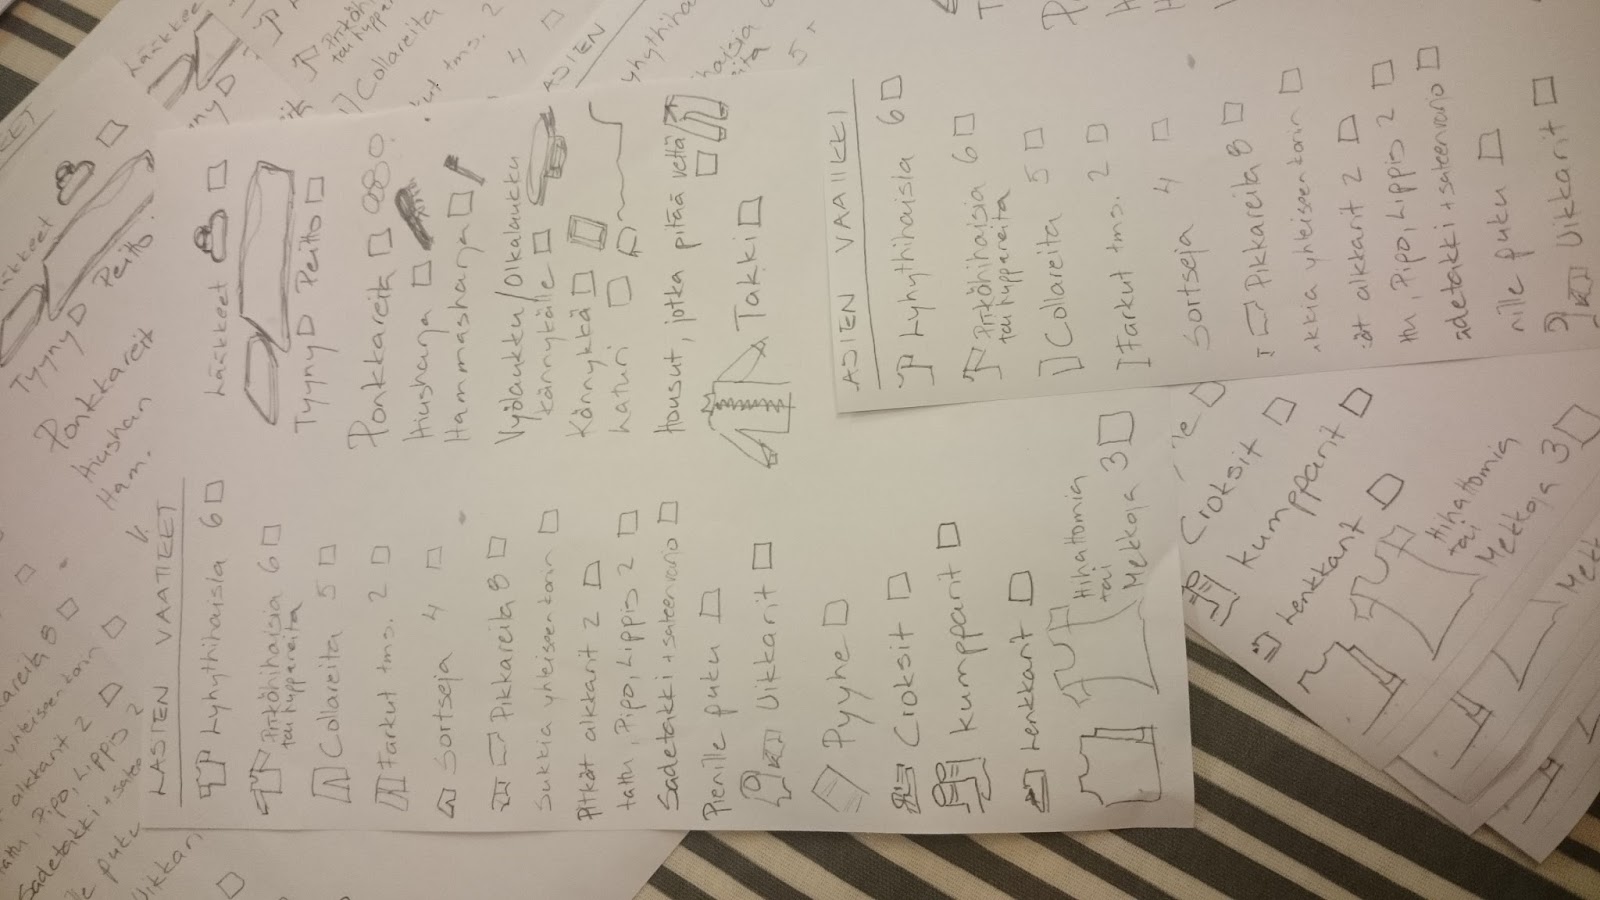 LASTEN VAATTEET
Lyhythihaisia 6
Pitkähihaisia 6
tai huppareita
Collareita 5
Farkut tms. 2
Sortseja 4
Pikkareita 8
Sukkia yhteiseen koriin
Pitkät alkkarit 2
tattu, Pipo, Lippis 2
Sadetakki + sateenvarjo
Pienille puku
Uikkarit
Pyyhe
Croksit
Kumpparit
Lenkkarit
Hihattomia
tai
Mekkoja 3
Lääkkeet
Tyyny Peitto
Ponkkareita
Hiusharja
Hammasharja
Vyölaukku / Olkalaukku
kännykälle
Kännykkä
Laturi
Housut, jotka pitää vettä
Takki
LASTEN VAATTEET
Lyhythihaisia 6
Pitkähihaisia 6
tai huppareita
Collareita 5
Farkut tms. 2
Sortseja 4
Pikkareita 8
kkia yhteiseen koriin
ät alkkarit 2
ttu, Pipo, Lippis 2
adetakki + sateenvarjo
nille puku
Uikkarit
Croksit
Kumpparit
Lenkkarit
Hihattomia
tai
Mekkoja 3
Lääkkeet
Tyyny Peitto
Ponkkareit
Hiushar
Ham
areita 8
yhteiseen koriin
alkkarit 2
tattu, Pipo, Lippis 2
Sadetakki + satee
lle puku
Uikkari
Lääkkee
Pitkäh
tai huppareita
Collareita
ut tms. 2
4